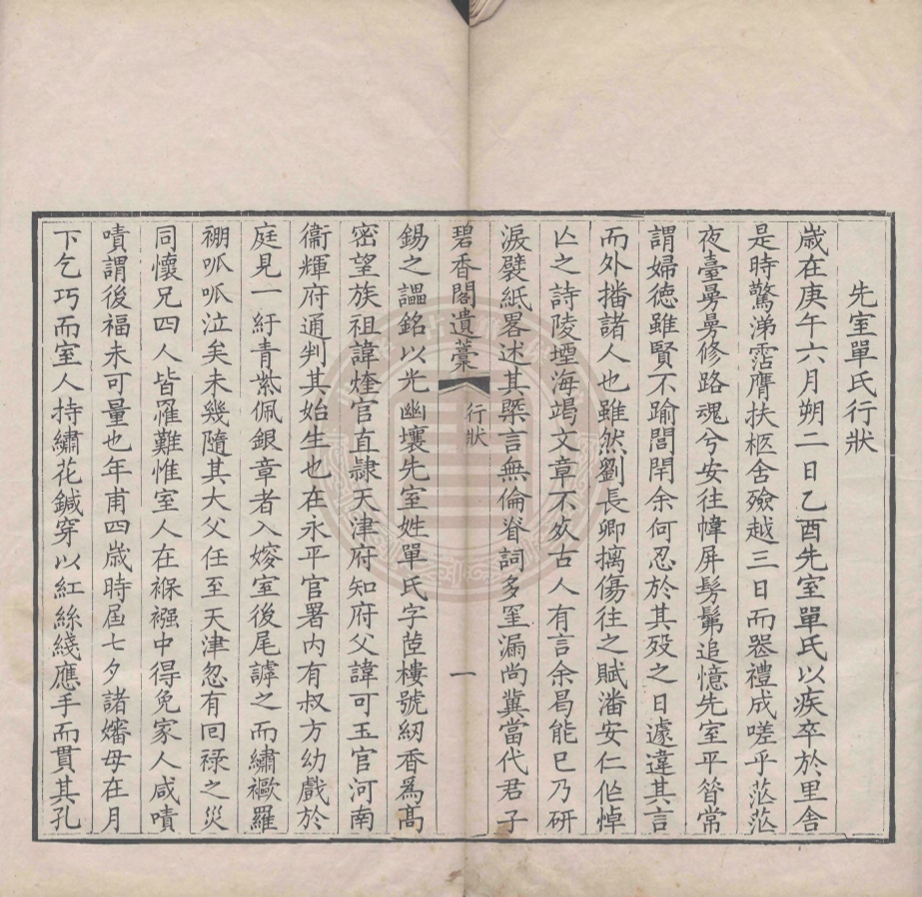 先室單氏行狀
歲在庚午六月朔二日乙酉先室單氏以疾卒於里舍
是時驚涕霑膺扶柩舍殮越三日而器禮成嗟乎茫茫
夜臺曑曑修路魂兮安往幃屏髣髴追憶先室平昝常
謂婦德雖賢不踰閭閈余何忍於其歿之日遽違其言
而外播諸人也雖然劉長卿摛傷往之賦潘安仁作悼
亾之詩陵堙海竭文章不效古人有言余曷能已乃研
淚襞紙畧述其槩言無倫脊詞多罣漏尚冀當代君子
碧香閣遺藁 行狀 一
錫之諡銘以光幽壤先室姓單氏字茝樓號紉香爲高
密望族祖諱煃官直隷天津府知府父諱可玉官河南
衞輝府通判其始生也在永平官署內有叔方幼戲於
庭見一紆青紫佩銀章者入嫆室後尾謼之而繡襽羅
襧呱呱泣矣未幾隨其大父任至天津忽有回祿之災
同懷兄四人皆罹難惟室人在褓襁中得免家人咸嘖
嘖謂後福未可量也年甫四歲時屆七夕諸嬸母在月
下乞巧而室人持繡花鍼穿以紅絲綫應手而貫其孔